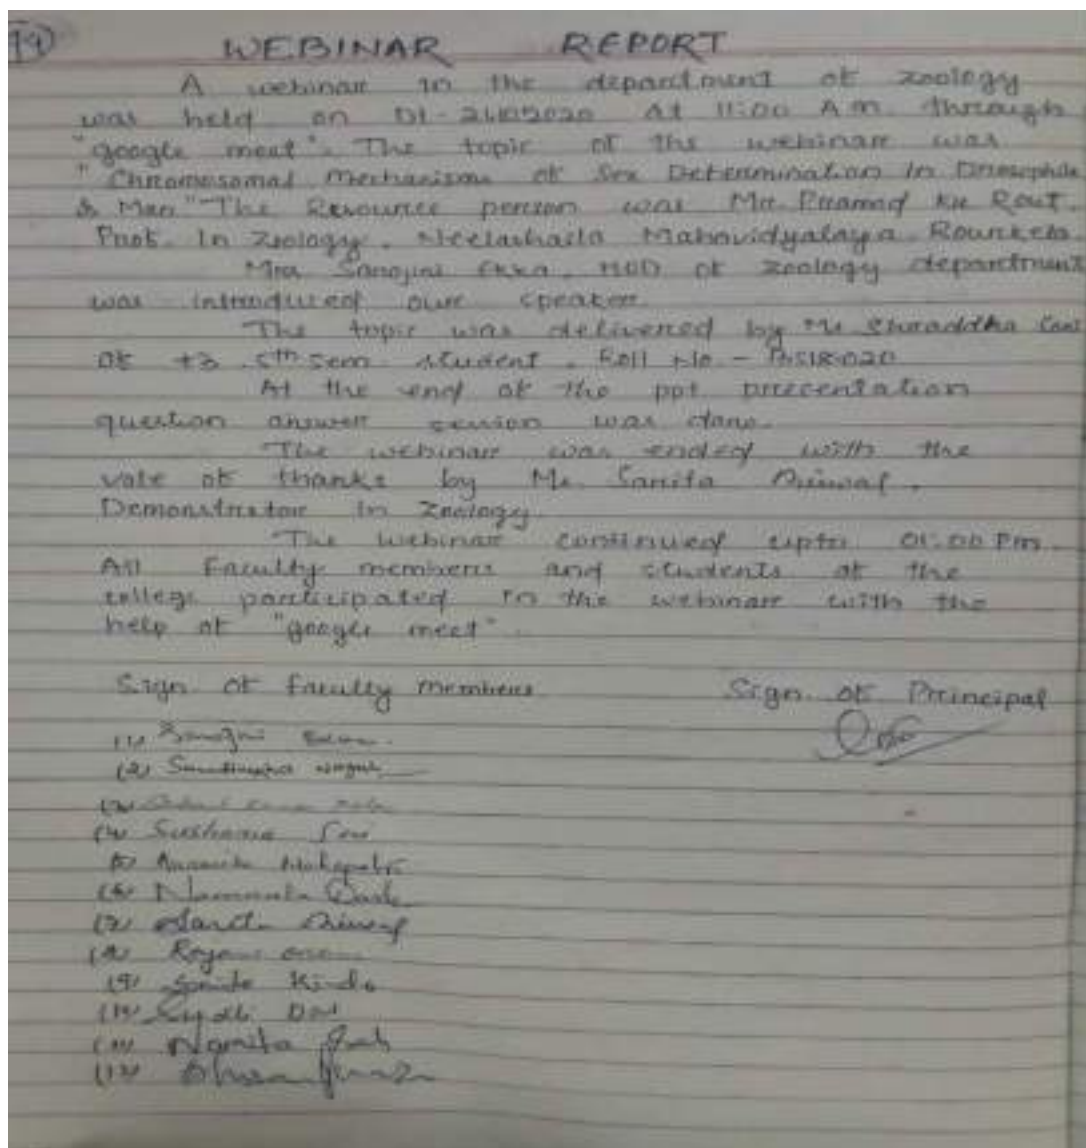 WEBINAR REPORT
A webinar in the department of zoology
was held on Dt - at 11:00 A.M. through
"google meet". The topic of the webinar was
"Chromosomal Mechanism of Sex Determination in Drosophila
& Man" The Resource person was Mr. Pramod Ku Rout.
Prof. In Zoology. Neelashaila Mahavidyalaya. Rourkela.
Mrs Sanojini Ekka. HOD of zoology department
was introduced our speaker.
The topic was delivered by Ms Shraddha
of +3 5th sem student. Roll No. -
At the end of the ppt presentation
question answer session was done.
The webinar was ended with the
vote of thanks by Ms. Sarita
Demonstrator in Zoology.
The webinar continued upto 01:00 Pm.
All Faculty members and students of the
college participated in the webinar with the
help of "google meet".
Sign. of faculty members
Sign. of Principal
(1)
(2)
(3)
(4) Sushama
(5)
(6) Namrata
(7)
(8)
(9) Kindo
(10)
(11) Namita
(12)